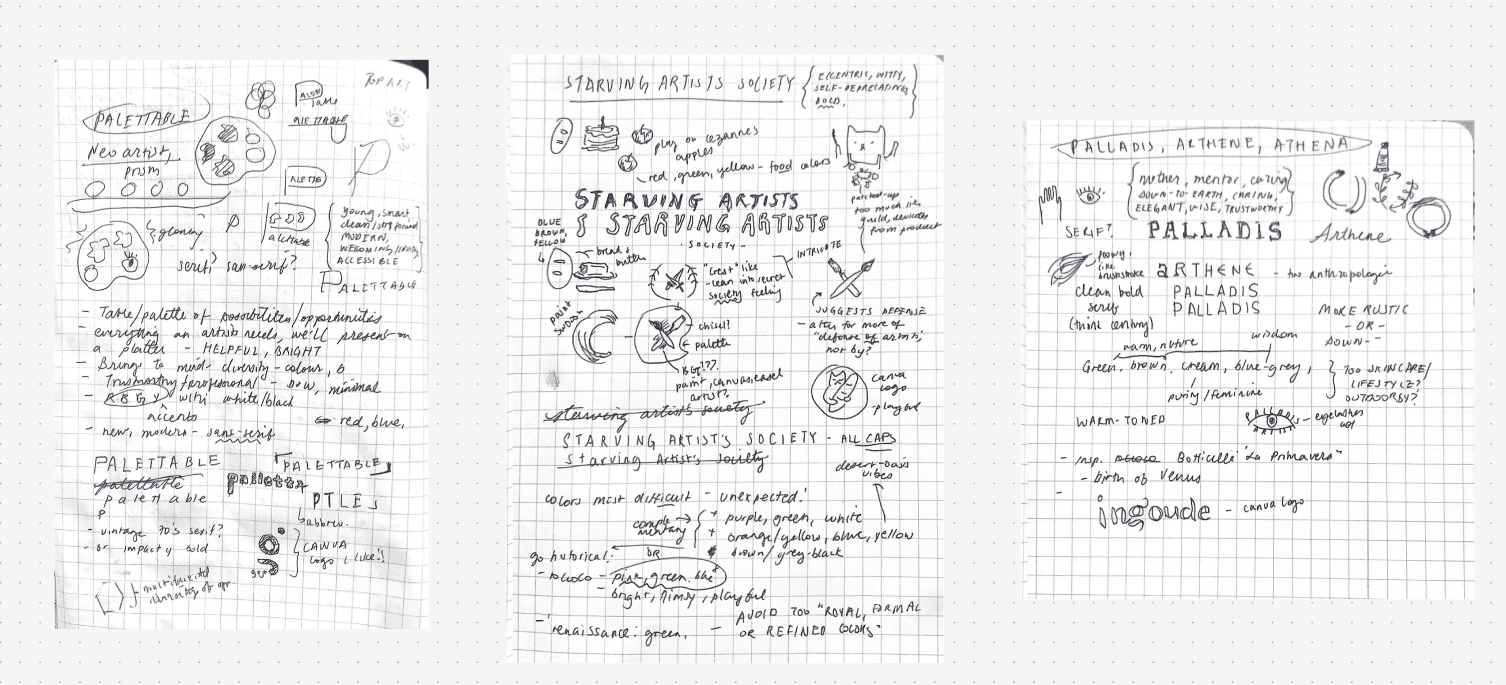 PALETTABLE
ALETTABLE
Neo artist,
prism
ALETTB
P
alettable
young, smart,
clean/
MODERN,
ACCESSIBLE
serif? san-serif?
PALETTABLE
- Table/palette of possibilities/opportunities
- everything an artist needs, we'll present on
a platter - HELPFUL, BRIGHT
- Bring to mind diversity - colour,
- Trustworthy/professional - minimal
- RBGY with white/black
accents
red, blue,
- new, modern - sans-serif
PALETTABLE
PALETTABLE
palettable
palettable
P
PTLE
abbrev.
- vintage 70's serif?
- or impacty bold
CANVA
logo I like!!
STARVING ARTISTS SOCIETY
ECCENTRIC, WITTY,
SELF-DEPRECATING,
BOLD,
play on cezannes
apples
red, green, yellow - food colors
patched-up
too much like
guild, deviates
from product
STARVING ARTISTS
STARVING ARTISTS
- SOCIETY -
BLUE
BROWN,
YELLOW
bread +
butter
"Crest" like
- lean into secret
society feeling
INTRICATE
paint
swoosh
chisel?
palette
BG???
paint, canvas, easel
artist?
SUGGESTS DEFENSE
- after for more of
"defense of artists,"
not by?
canva
logo
- playful
starving artist's society
STARVING ARTIST'S SOCIETY - ALL CAPS
Starving Artist's Society
desert-oasis
vibes
colors most difficult - unexpected!
complementary
+ purple, green, white
+ orange/yellow, blue, yellow
brown/grey-black
go historical:
OR
- rococo - pink, green, blue
- bright, flimsy, playful
- renaissance: green,
- AVOID TOO "ROYAL, FORMAL
OR REFINED COLORS"
PALLADIS, ARTHENE, ATHENA
mother, mentor, caring
DOWN-TO-EARTH, CARING,
ELEGANT, WISE, TRUSTWORTHY
SERIF?
PALLADIS
Arthene
flowy
like
brushstroke
aRTHENE - too anthropologie
clean bold
PALLADIS
serif
PALLADIS
(think century)
MORE RUSTIC
- OR -
DOWN--
warm, nature
wisdom
Green, brown, cream, blue-grey,
purity/feminine
TOO SKINCARE/
LIFESTYLE?
OUTDOORSY?
WARM-TONED
PALLADIS
ARTISTS
- eyelashes
- insp. Botticelli "La Primavera"
- birth of Venus
-
ingoude - canva logo